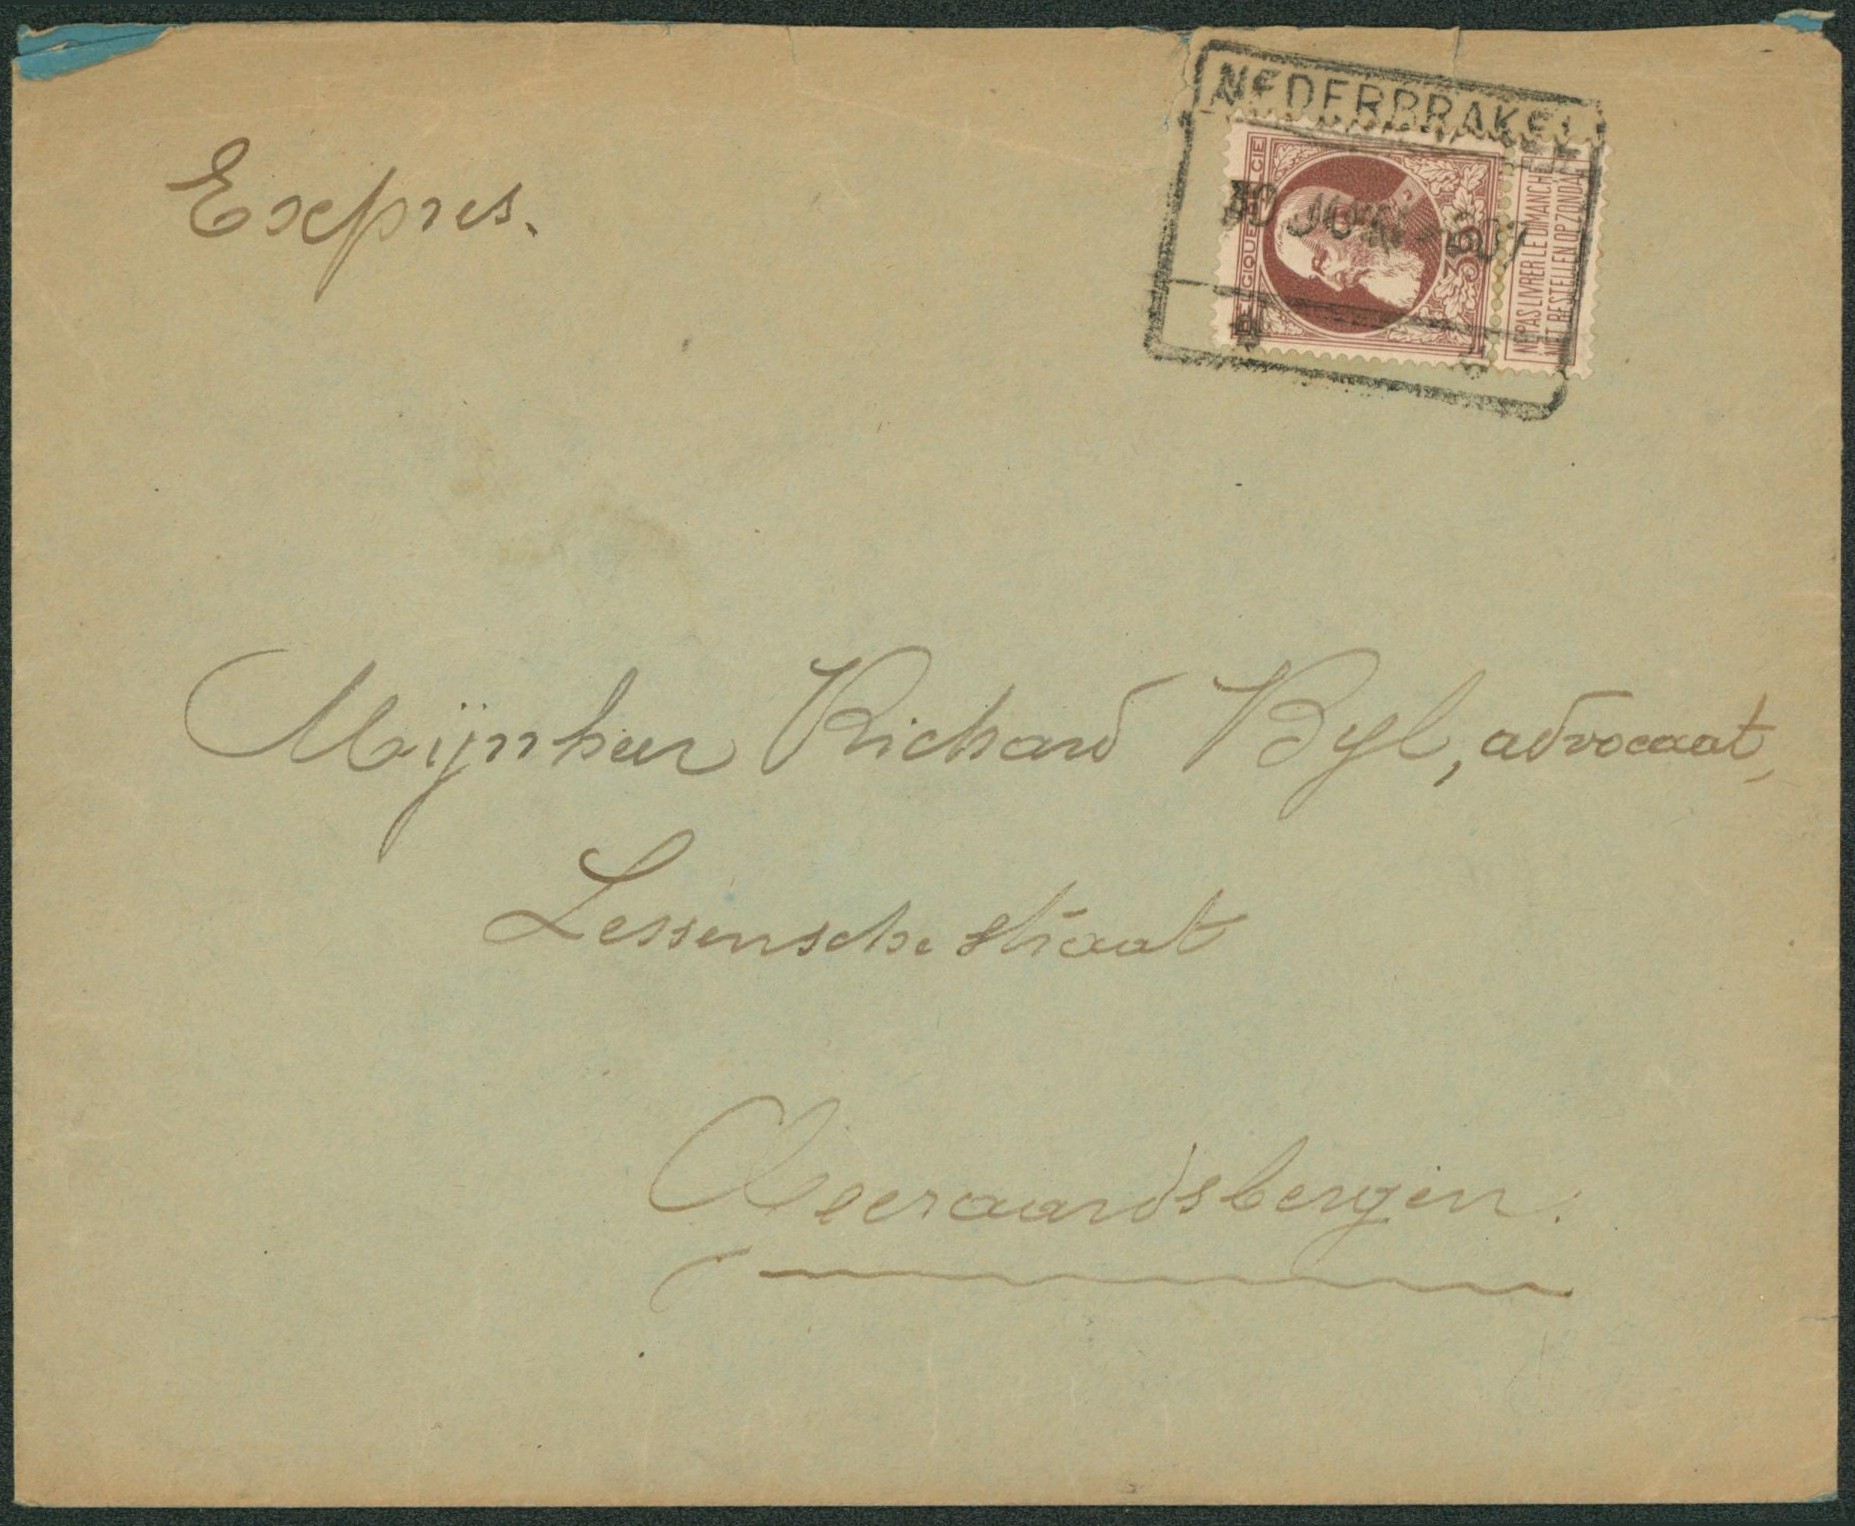 NEDERBRAKEL
Expres.
BELGIQUE
35
NE PAS LIVRER LE DIMANCHE
NIET BESTELLEN OP ZONDAG
Mijnheer Richard Byl, advocaat,
Lessensche straat
Geeraardsbergen.